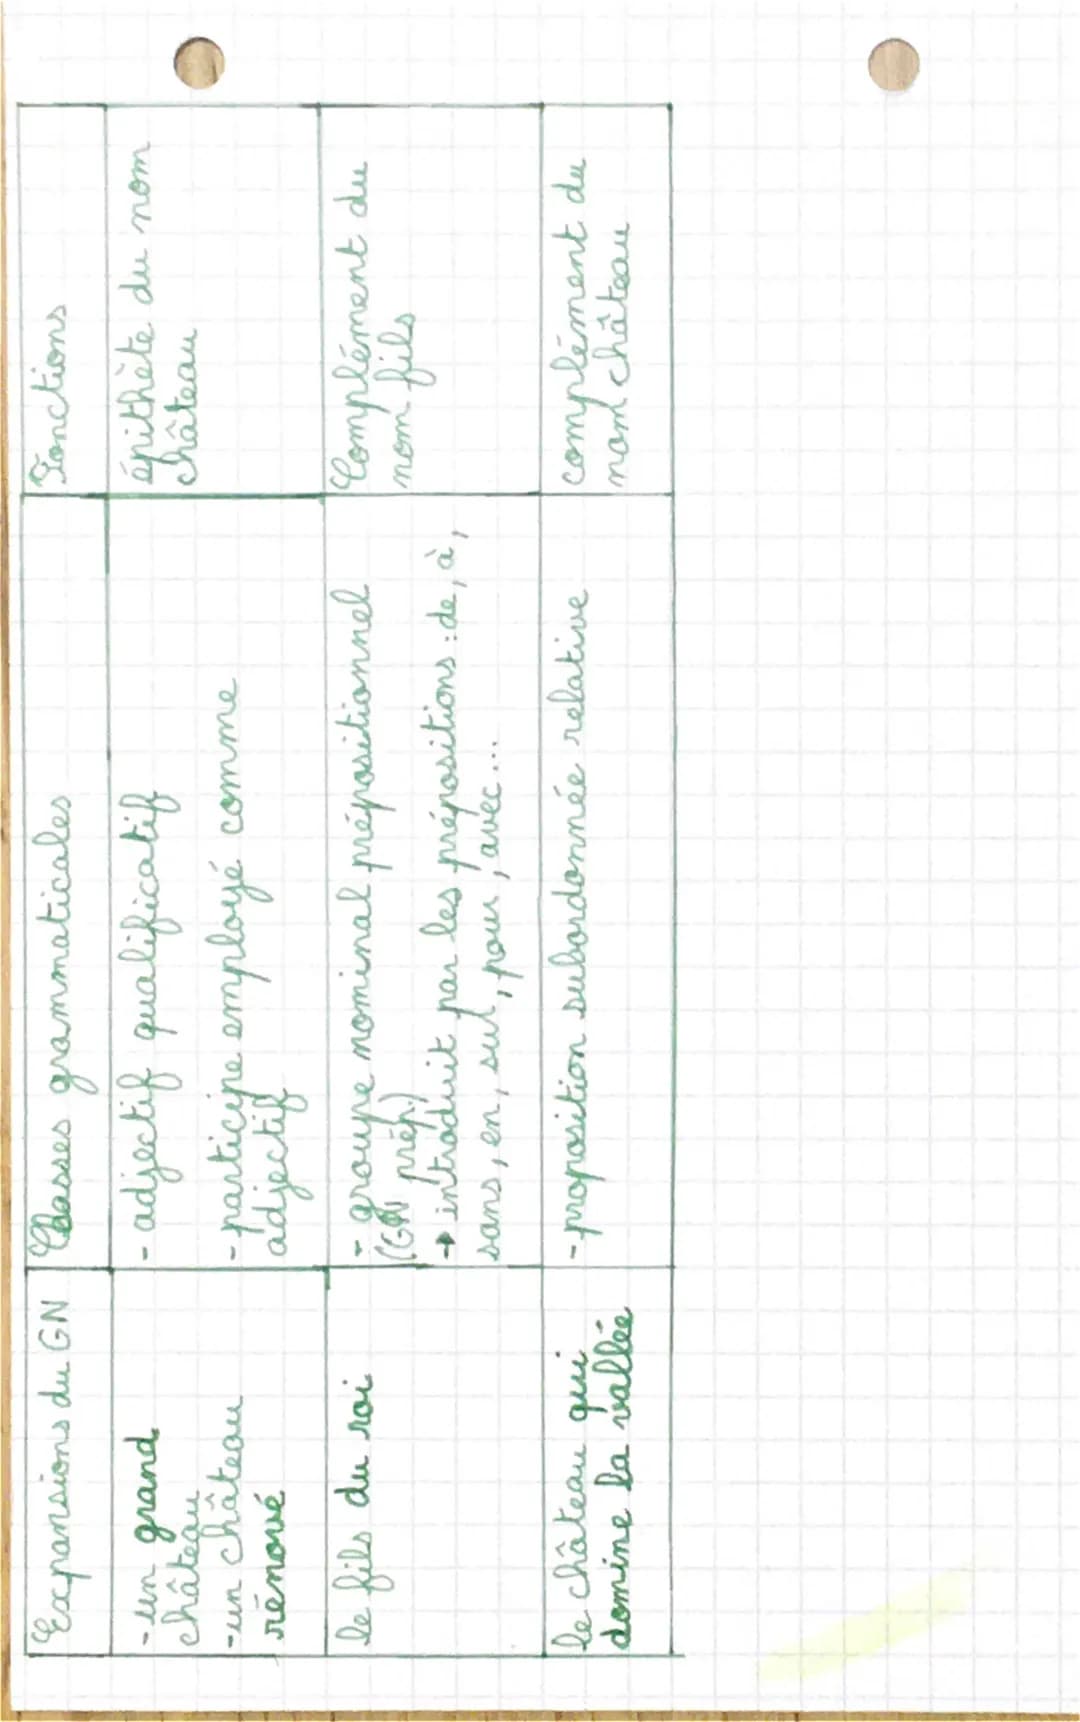 Expansions du GN
Classes grammaticales
Fonctions
- un grand
château
- un château
rénové
- adjectif qualificatif
- participe employé comme
adjectif
épithète du nom
château
le fils du roi
- groupe nominal prépositionnel
(GN prép)
→ introduit par les prépositions : de, à,
sans, en, sur, pour, avec...
Complément du
nom fils
le château qui
domine la vallée
- proposition subordonnée relative
complément du
nom château